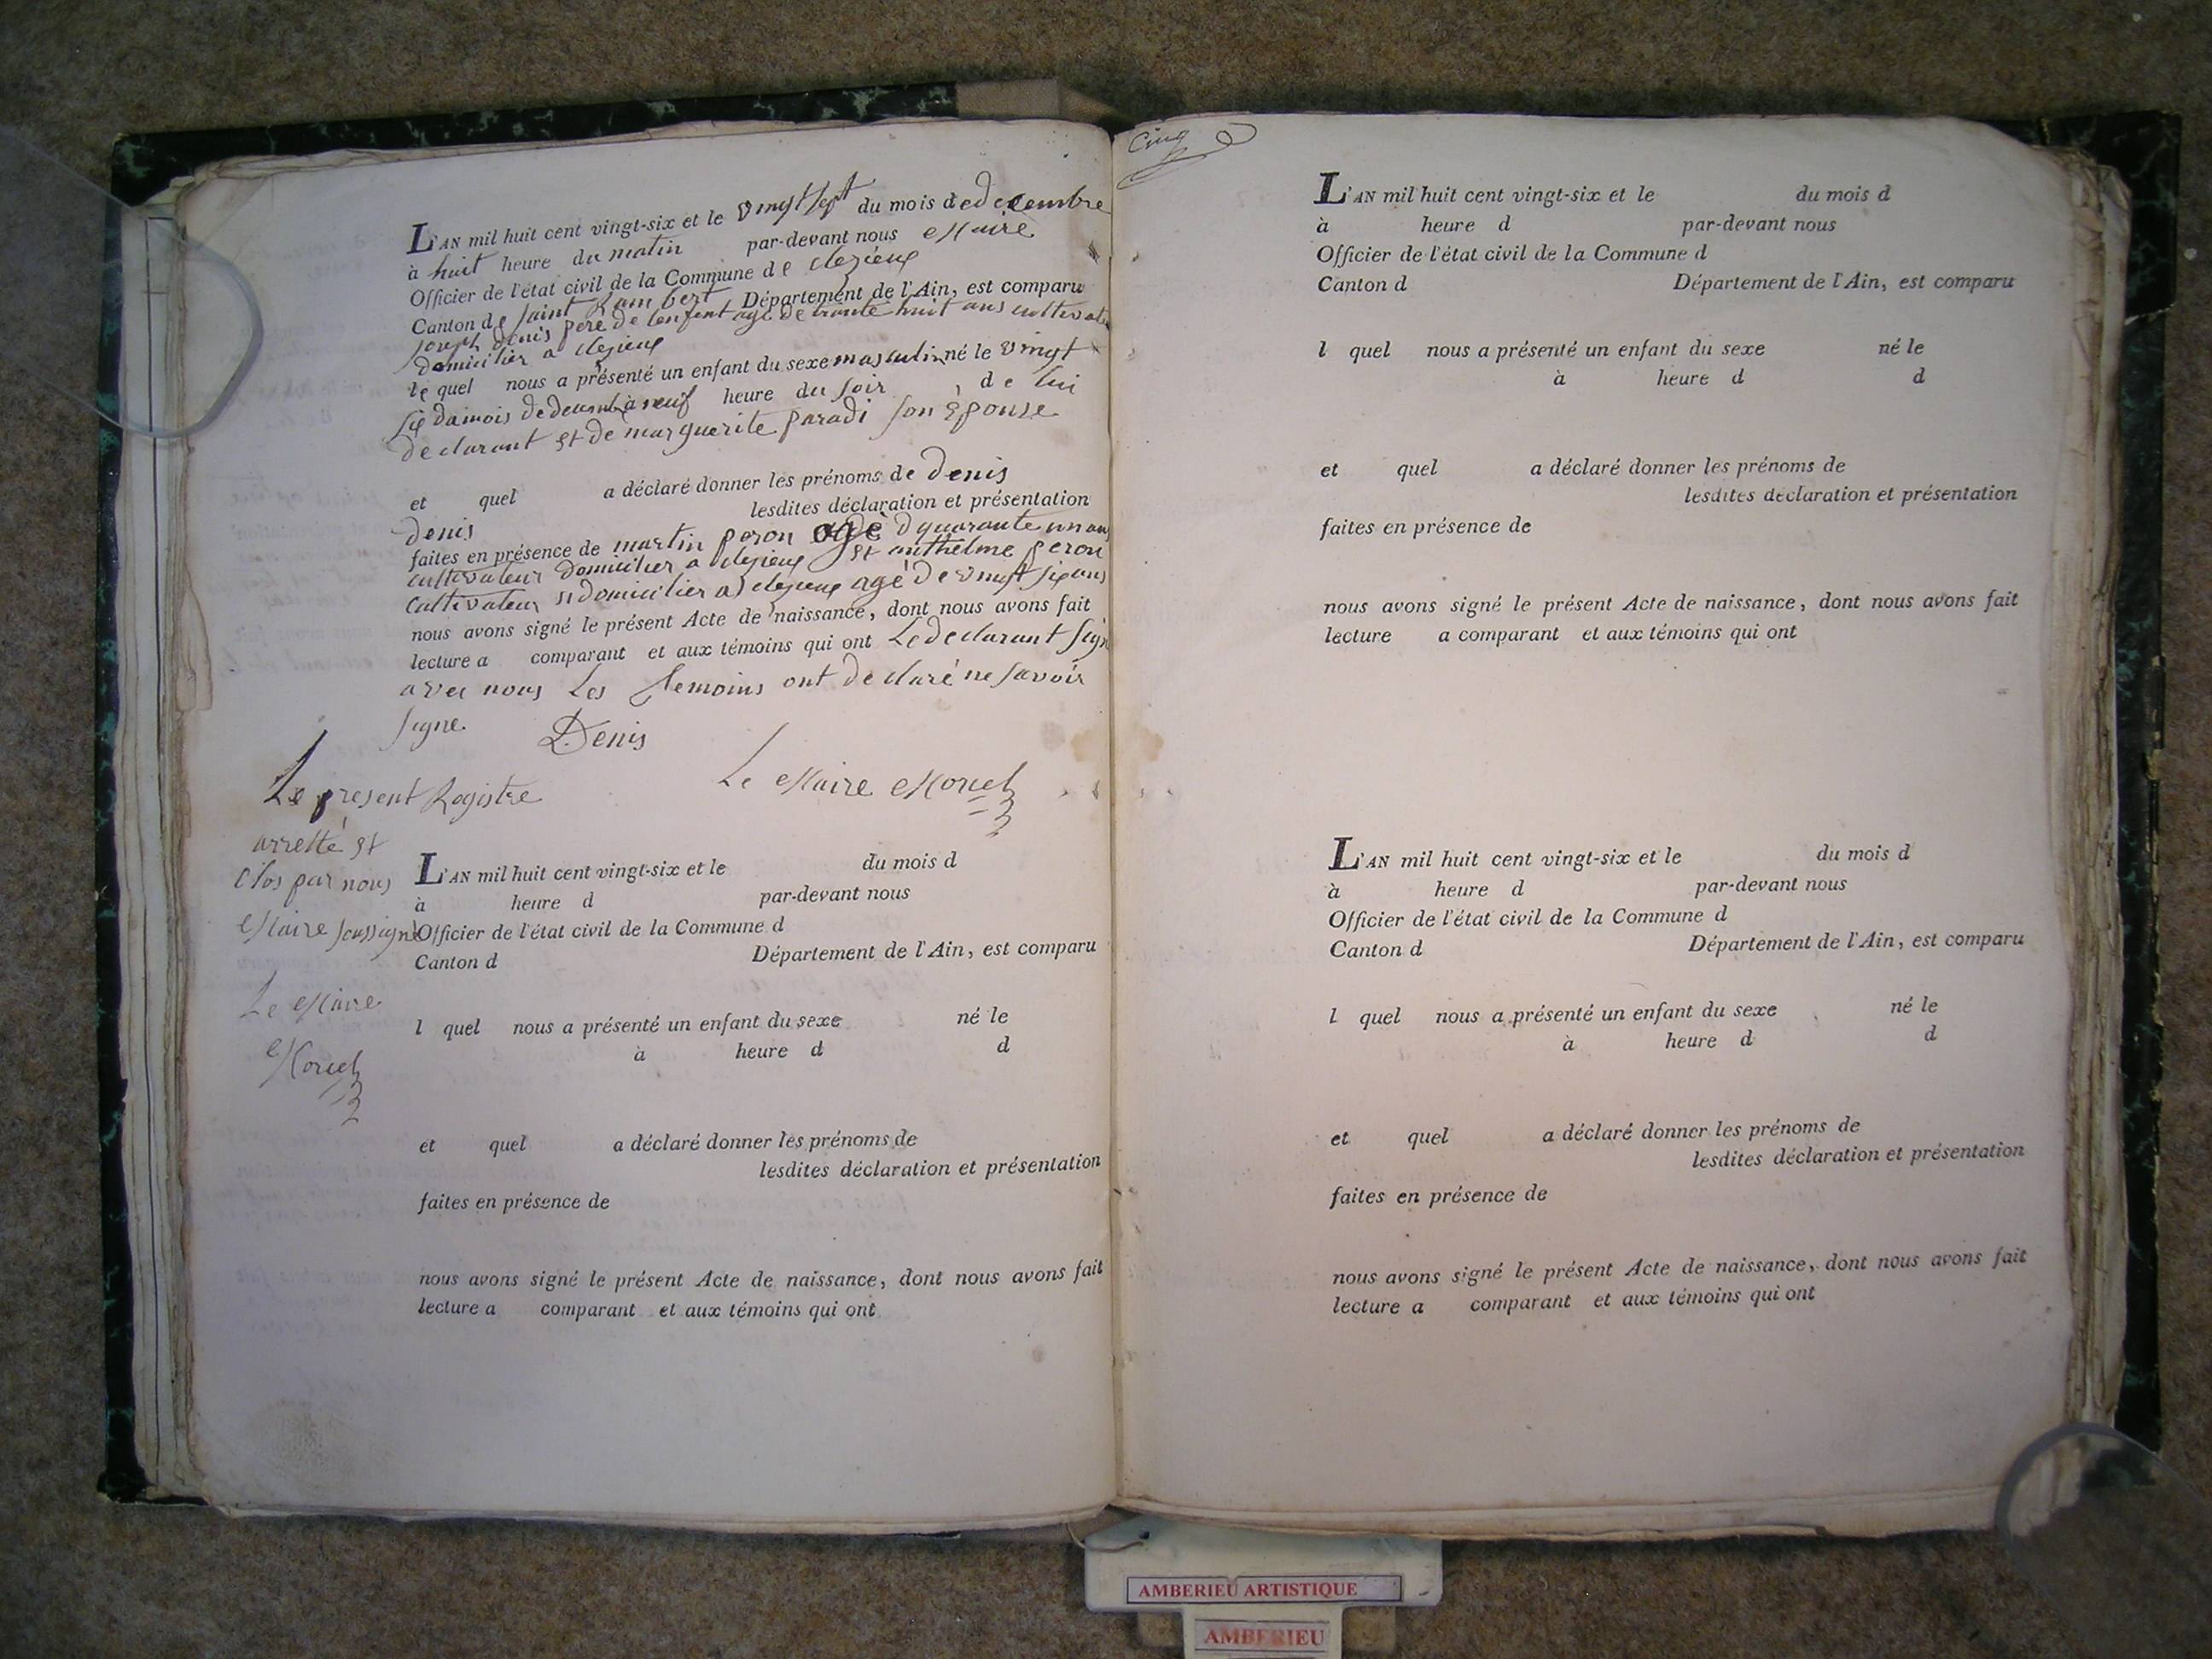 L'AN mil huit cent vingt-six et le vingt sept du mois de decembre
à huit heure du matin par-devant nous Maire
Officier de l'état civil de la Commune de clezieux
Canton de saint Rambert Département de l'Ain, est comparu
joseph denis pere de lenfent agé de trante huit ans cultivate
domicilier a clezieux
le quel nous a présenté un enfant du sexe masculin né le vingt
six du mois de decembre à neuf heure du soir, de lui
declarant et de marguerite paradi son épouse
et quel a déclaré donner les prénoms de denis
denis lesdites déclaration et présentation
faites en présence de martin peron agé d quarante un ans
cultivateur domicilier a clezieux et anthelme peron
cultivateur domicilier a clezieux agé de vingt six ans
nous avons signé le présent Acte de naissance, dont nous avons fait
lecture a comparant et aux témoins qui ont Le declarant sign
avec nous Les temoins ont declaré ne savoir
signe. Denis
Le Maire Morel
Le present Registre
arretté et
clos par nous
Maire soussigné
Le Maire
Morel
L'AN mil huit cent vingt-six et le du mois d
à heure d par-devant nous
Officier de l'état civil de la Commune d
Canton d Département de l'Ain, est comparu
l quel nous a présenté un enfant du sexe né le
à heure d d
et quel a déclaré donner les prénoms de
lesdites déclaration et présentation
faites en présence de
nous avons signé le présent Acte de naissance, dont nous avons fait
lecture a comparant et aux témoins qui ont
Cinq
L'AN mil huit cent vingt-six et le du mois d
à heure d par-devant nous
Officier de l'état civil de la Commune d
Canton d Département de l'Ain, est comparu
l quel nous a présenté un enfant du sexe né le
à heure d d
et quel a déclaré donner les prénoms de
lesdites déclaration et présentation
faites en présence de
nous avons signé le présent Acte de naissance, dont nous avons fait
lecture a comparant et aux témoins qui ont
L'AN mil huit cent vingt-six et le du mois d
à heure d par-devant nous
Officier de l'état civil de la Commune d
Canton d Département de l'Ain, est comparu
l quel nous a présenté un enfant du sexe né le
à heure d d
et quel a déclaré donner les prénoms de
lesdites déclaration et présentation
faites en présence de
nous avons signé le présent Acte de naissance, dont nous avons fait
lecture a comparant et aux témoins qui ont
AMBERIEU ARTISTIQUE
AMBERIEU